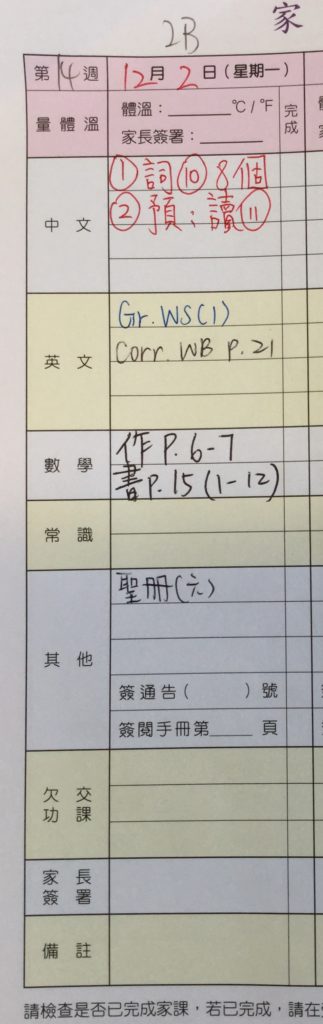 2B
家
第14週 12月2日(星期一)
量體溫 體溫:______℃/℉ 完成
家長簽署:______
中文 ①詞⑩8個
②預:讀⑪
英文 Gr. WS(1)
Corr. WB P.21
數學 作P.6-7
書P.15(1-12)
常識
其他 聖冊(六)
簽通告( )號
簽閱手冊第____頁
欠交功課
家長簽署
備註
請檢查是否已完成家課,若已完成,請在